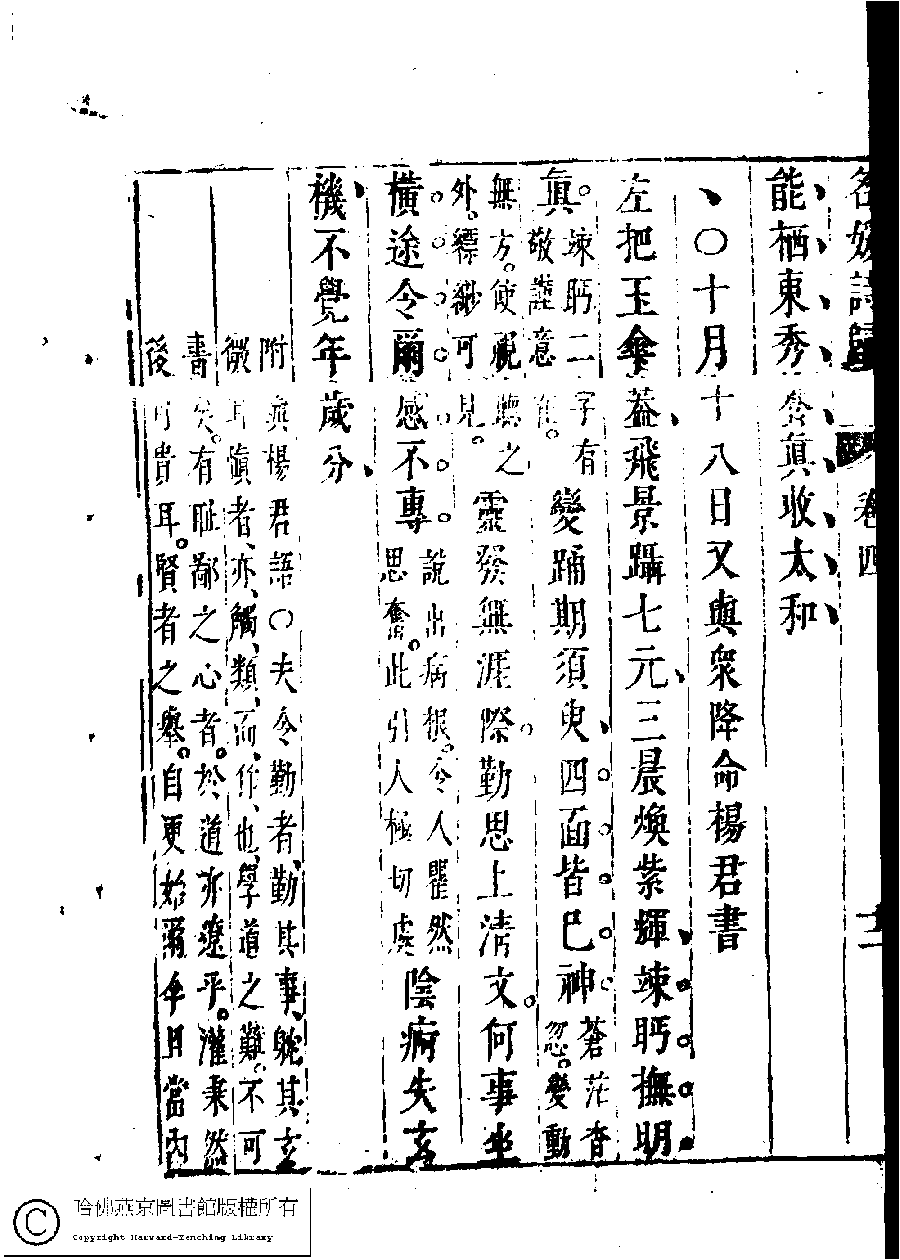 名媛詩歸 卷四 十二
能栖東秀㑹真收太和
〇十月十八日又與衆降命楊君書
左把玉華蓋飛景躡七元三晨煥紫輝竦眄撫明
真竦眄二字有敬謹意變踊期須臾四面皆已神蒼茫杳忽變動
無方使視聽之外縹緲可見靈發無涯際勤思上清文何事坐
橫途令爾感不專說出病根令人瞿然思奮此引人極切處陰痾失玄
機不覺年歲分
附與楊君語〇夫令勤者勤其事躭其玄
微耳慎者亦觸類而作也學道之難不可
書矣有恥鄙之心者於道亦遼乎灌秉然
後可貴耳賢者之舉自更始爾且當內
哈佛燕京圖書館版權所有
Copyright Harvard-Yenching Library